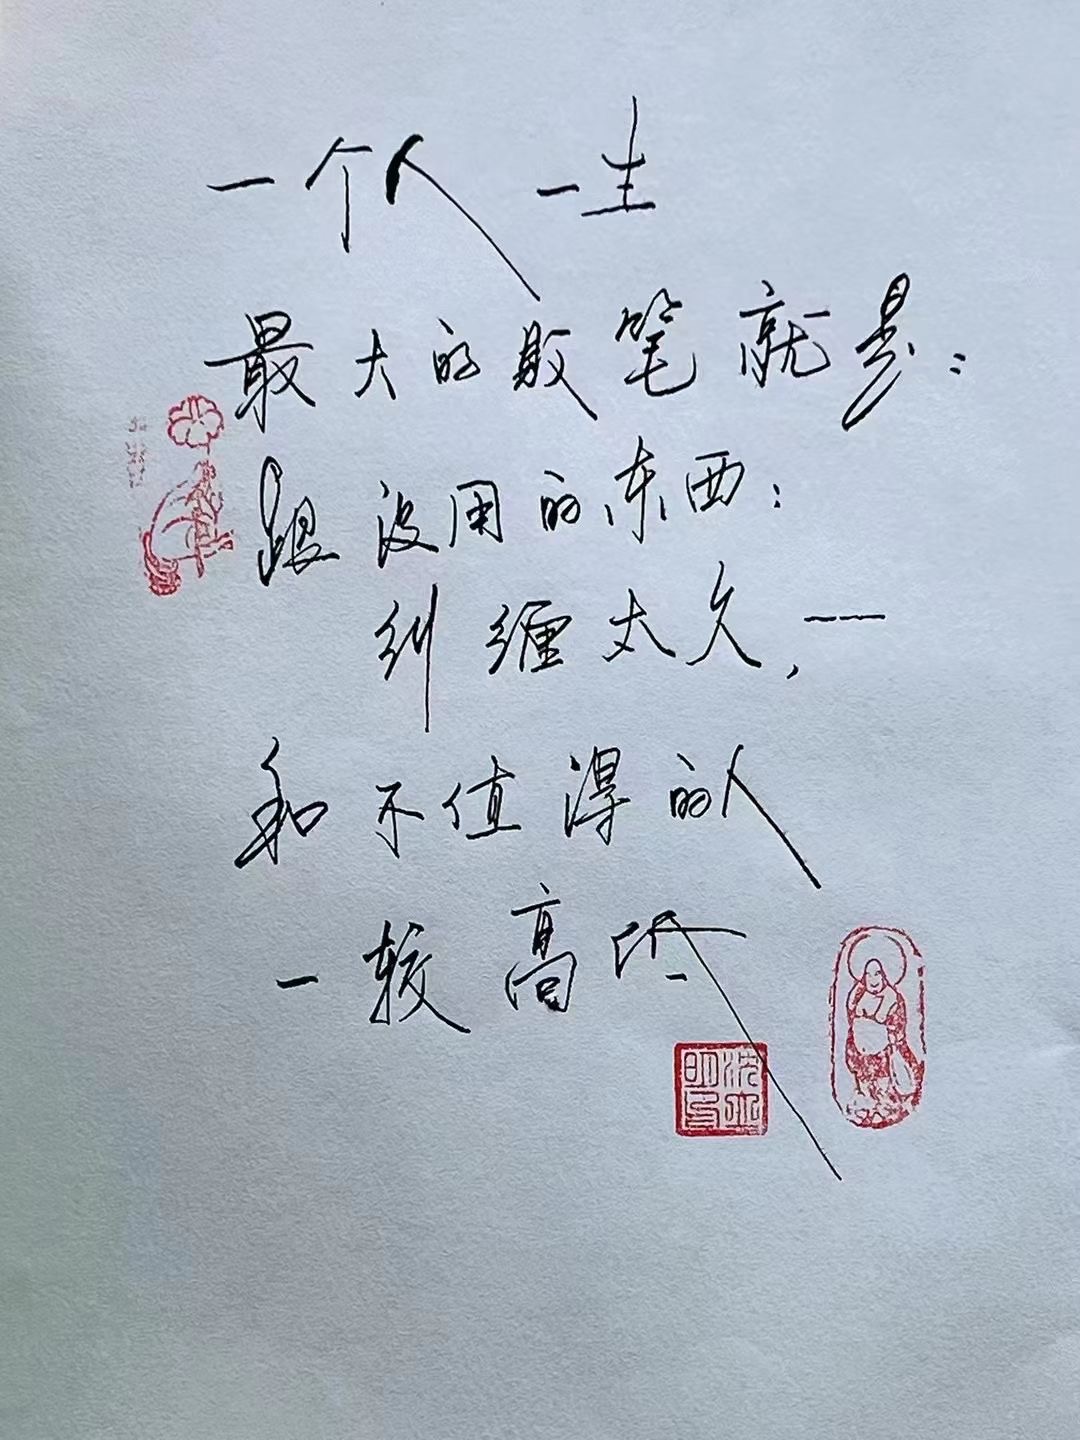 一个人 一生
最大的败笔就是：
跟没用的东西：
纠缠太久，——
和不值得的人
一较高低